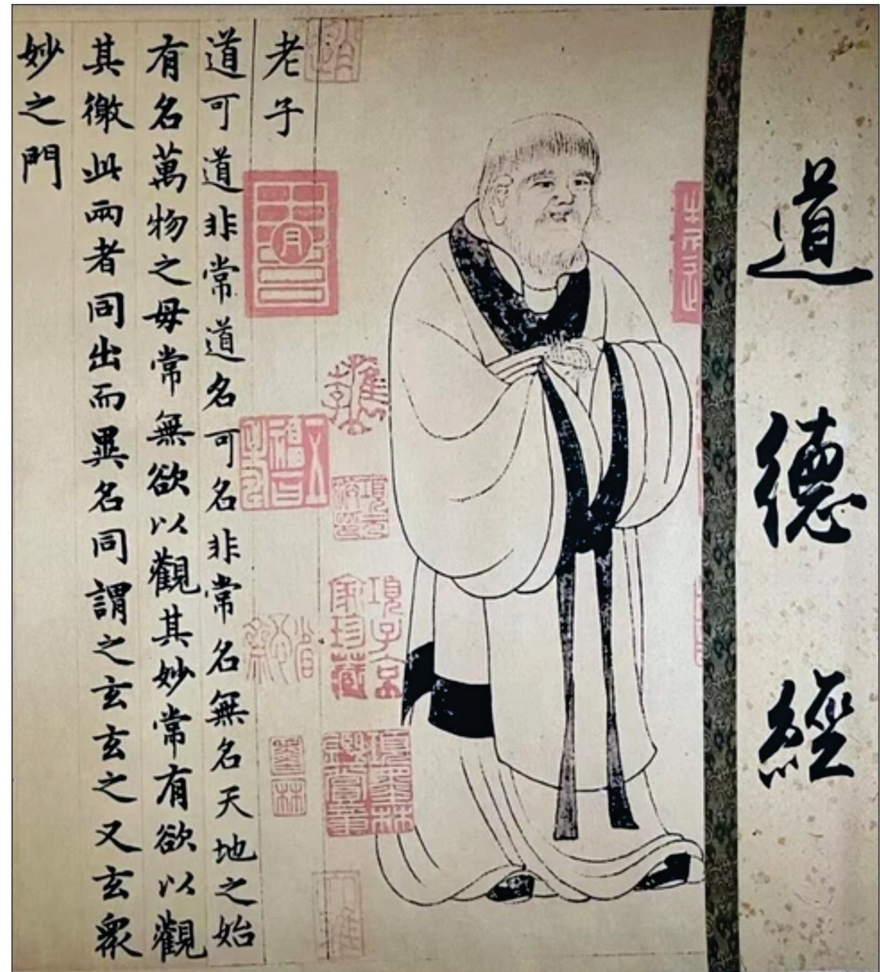 道德經
老子
道可道非常道名可名非常名無名天地之始
有名萬物之母常無欲以觀其妙常有欲以觀
其徼此兩者同出而異名同謂之玄玄之又玄衆
妙之門
項子京
家珍藏
項墨林
墨林